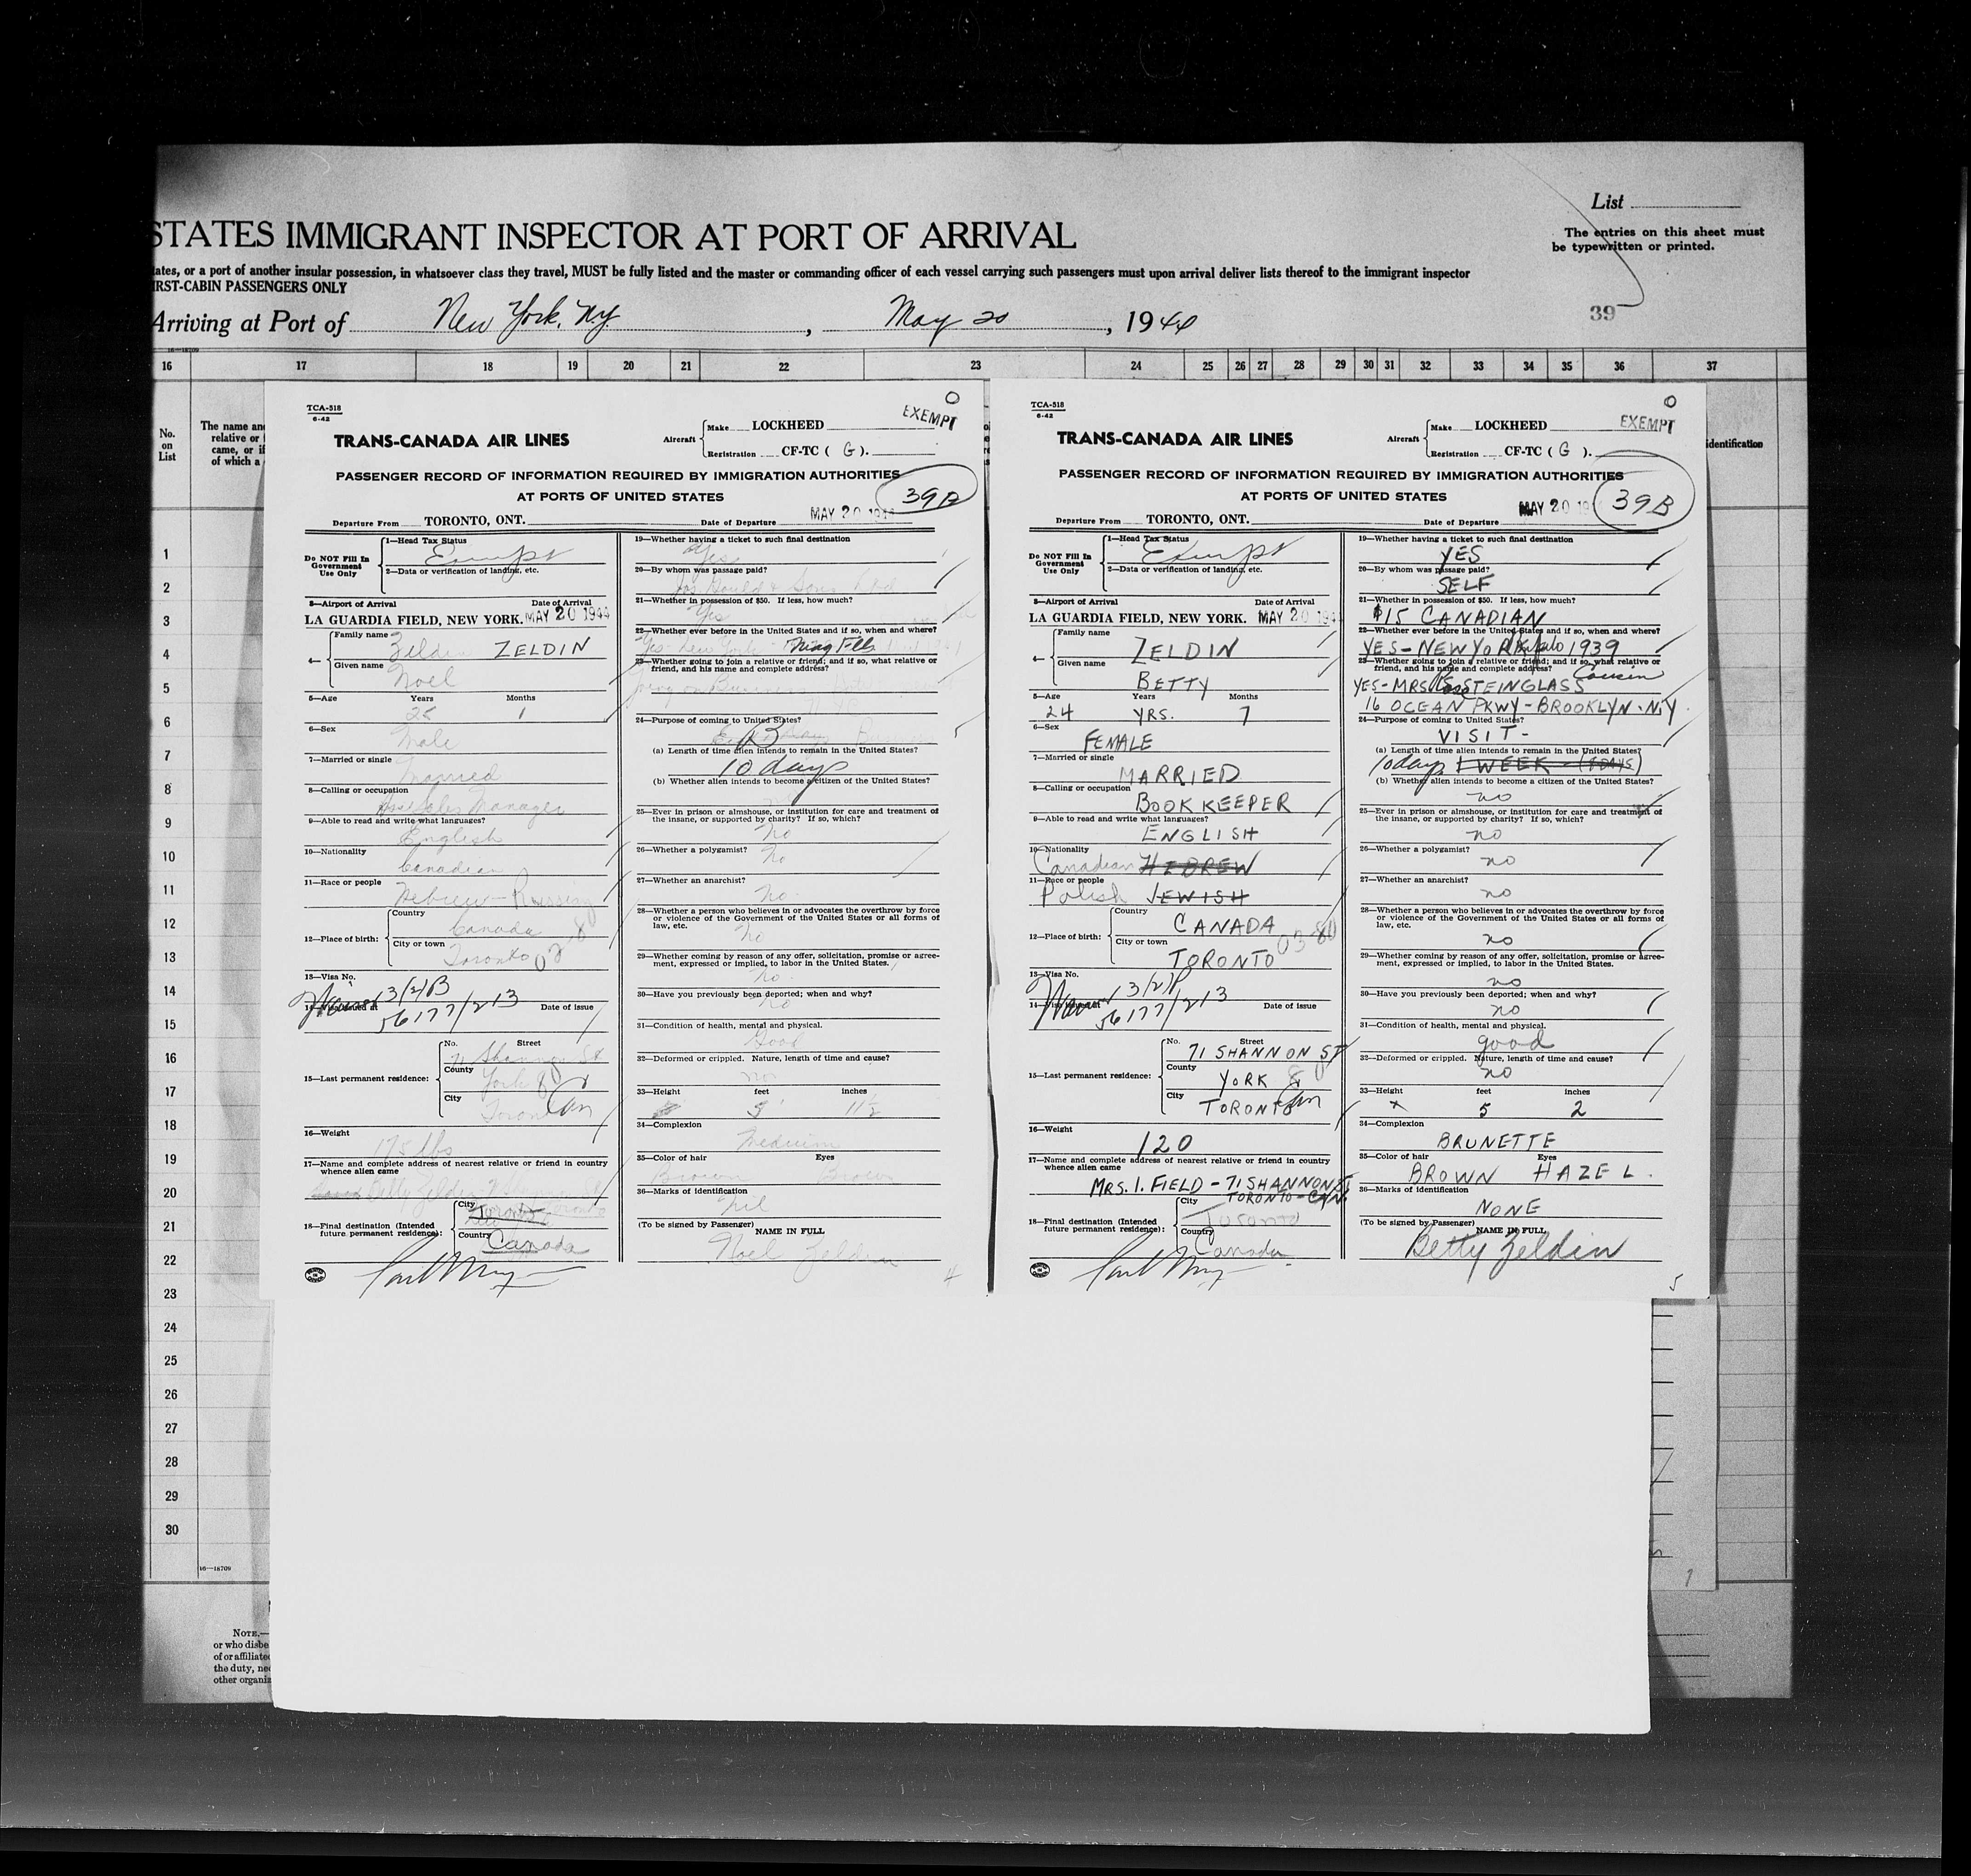 List
STATES IMMIGRANT INSPECTOR AT PORT OF ARRIVAL
The entries on this sheet must
be typewritten or printed.
ates, or a port of another insular possession, in whatsoever class they travel, MUST be fully listed and the master or commanding officer of each vessel carrying such passengers must upon arrival deliver lists thereof to the immigrant inspector
IRST-CABIN PASSENGERS ONLY
Arriving at Port of New York, N.Y. , May 20 , 1944
39
16—18709
16 17 18 19 20 21 22 23 24 25 26 27 28 29 30 31 32 33 34 35 36 37
No.
on
List
The name and
relative or
came, or if
of which a
identification
1
2
3
4
5
6
7
8
9
10
11
12
13
14
15
16
17
18
19
20
21
22
23
24
25
26
27
28
29
30
16—18709
NOTE.—
or who disbe
of or affiliated
the duty, nec
other organiz
TCA-518
6-42
EXEMPT
TRANS-CANADA AIR LINES
Aircraft
Make LOCKHEED
Registration CF-TC ( G ).
PASSENGER RECORD OF INFORMATION REQUIRED BY IMMIGRATION AUTHORITIES
AT PORTS OF UNITED STATES
Departure From TORONTO, ONT.
Date of Departure MAY 20 1944
Do NOT Fill In
Government
Use Only
1—Head Tax Status
Exempt
2—Data or verification of landing, etc.
3—Airport of Arrival Date of Arrival
LA GUARDIA FIELD, NEW YORK. MAY 20 1944
4— Family name
Zeldin ZELDIN
Given name
Noel
5—Age Years Months
1
6—Sex
Male
7—Married or single
Married
8—Calling or occupation
Sales Manager
9—Able to read and write what languages?
English
10—Nationality
Canadian
11—Race or people
Hebrew - Russian
12—Place of birth:
Country
Canada
City or town
Toronto
13—Visa No.
3(2)B
14—Visa issued at Date of issue
56177/213
15—Last permanent residence:
No. Street
71 Shannon St
County
York
City
Toronto
16—Weight
175 lbs
17—Name and complete address of nearest relative or friend in country
whence alien came
Betty Zeldin
18—Final destination (Intended
future permanent residence):
City
Toronto
Country
Canada
19—Whether having a ticket to such final destination
Yes
20—By whom was passage paid?
21—Whether in possession of $50. If less, how much?
Yes
22—Whether ever before in the United States and if so, when and where?
Yes - New York - Niag Flls
23—Whether going to join a relative or friend; and if so, what relative or
friend, and his name and complete address?
24—Purpose of coming to United States?
B
(a) Length of time alien intends to remain in the United States?
10 days
(b) Whether alien intends to become a citizen of the United States?
25—Ever in prison or almshouse, or institution for care and treatment of
the insane, or supported by charity? If so, which?
No
26—Whether a polygamist?
No
27—Whether an anarchist?
No
28—Whether a person who believes in or advocates the overthrow by force
or violence of the Government of the United States or all forms of
law, etc.
No
29—Whether coming by reason of any offer, solicitation, promise or agree-
ment, expressed or implied, to labor in the United States.
No
30—Have you previously been deported; when and why?
No
31—Condition of health, mental and physical.
Good
32—Deformed or crippled. Nature, length of time and cause?
no
33—Height feet inches
5 11½
34—Complexion
Medium
35—Color of hair Eyes
Brown Brown
36—Marks of identification
nil
(To be signed by Passenger)
NAME IN FULL
Noel Zeldin
4
39A
TCA-518
6-42
EXEMPT
TRANS-CANADA AIR LINES
Aircraft
Make LOCKHEED
Registration CF-TC ( G ).
PASSENGER RECORD OF INFORMATION REQUIRED BY IMMIGRATION AUTHORITIES
AT PORTS OF UNITED STATES
39B
Departure From TORONTO, ONT.
Date of Departure MAY 20 19
Do NOT Fill In
Government
Use Only
1—Head Tax Status
Exempt
2—Data or verification of landing, etc.
3—Airport of Arrival Date of Arrival
LA GUARDIA FIELD, NEW YORK. MAY 20 194
4— Family name
ZELDIN
Given name
BETTY
5—Age Years Months
24 YRS. 7
6—Sex
FEMALE
7—Married or single
MARRIED
8—Calling or occupation
BOOKKEEPER
9—Able to read and write what languages?
ENGLISH
10—Nationality
Canadian HEBREW
11—Race or people
Polish JEWISH
12—Place of birth:
Country
CANADA
City or town
TORONTO
13—Visa No.
3(2)B
14—Visa issued at Date of issue
56177/213
15—Last permanent residence:
No. Street
71 SHANNON ST
County
YORK
City
TORONTO
16—Weight
120
17—Name and complete address of nearest relative or friend in country
whence alien came
MRS. I. FIELD - 71 SHANNON ST
TORONTO - CAN.
18—Final destination (Intended
future permanent residence):
City
Toronto
Country
Canada
19—Whether having a ticket to such final destination
YES
20—By whom was passage paid?
SELF
21—Whether in possession of $50. If less, how much?
$15 CANADIAN
22—Whether ever before in the United States and if so, when and where?
YES - NEW YORK Buffalo 1939
23—Whether going to join a relative or friend; and if so, what relative or
friend, and his name and complete address?
Cousin
YES - MRS. STEINGLASS
16 OCEAN PKWY - BROOKLYN - N.Y.
24—Purpose of coming to United States?
VISIT -
(a) Length of time alien intends to remain in the United States?
10 days 1 WEEK - (7 DAYS)
(b) Whether alien intends to become a citizen of the United States?
no
25—Ever in prison or almshouse, or institution for care and treatment of
the insane, or supported by charity? If so, which?
no
26—Whether a polygamist?
no
27—Whether an anarchist?
no
28—Whether a person who believes in or advocates the overthrow by force
or violence of the Government of the United States or all forms of
law, etc.
no
29—Whether coming by reason of any offer, solicitation, promise or agree-
ment, expressed or implied, to labor in the United States.
no
30—Have you previously been deported; when and why?
no
31—Condition of health, mental and physical.
good
32—Deformed or crippled. Nature, length of time and cause?
no
33—Height feet inches
x 5 2
34—Complexion
BRUNETTE
35—Color of hair Eyes
BROWN HAZEL.
36—Marks of identification
NONE
(To be signed by Passenger)
NAME IN FULL
Betty Zeldin
5